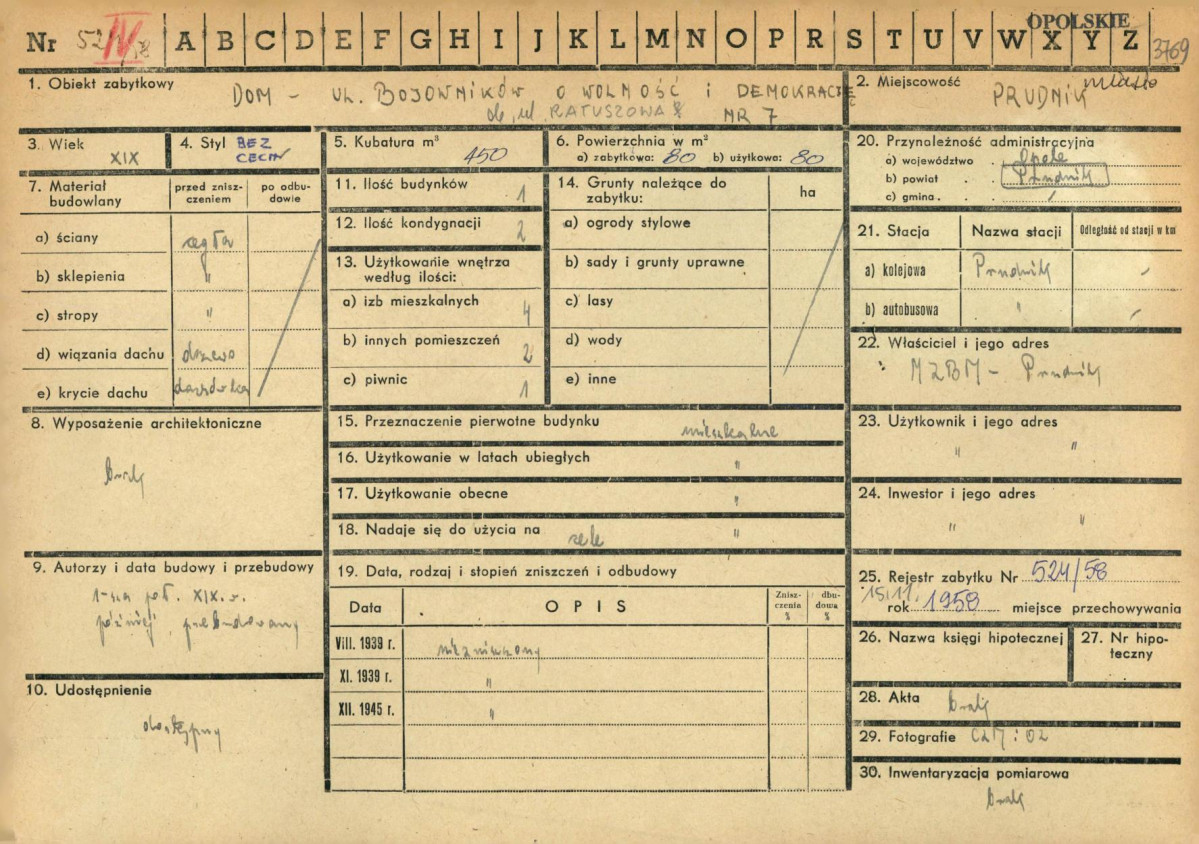 OPOLSKIE
Nr IV A B C D E F G H I J K L M N O P R S T U V W X Y Z 3769
1. Obiekt zabytkowy DOM – UL. BOJOWNIKÓW O WOLNOŚĆ i DEMOKRACJĘ
ob. ul. RATUSZOWA NR 7
2. Miejscowość miasto
PRUDNIK
3. Wiek
XIX
4. Styl BEZ
CECH
5. Kubatura m³
450
6. Powierzchnia w m²
a) zabytkowa: 80 b) użytkowa: 80
7. Materiał
budowlany
przed znisz-
czeniem
po odbu-
dowie
a) ściany cegła
b) sklepienia "
c) stropy "
d) wiązania dachu drzewo
e) krycie dachu dachówka
8. Wyposażenie architektoniczne
brak
9. Autorzy i data budowy i przebudowy
1-sza poł. XIX. w.
później przebudowany
10. Udostępnienie
dostępny
11. Ilość budynków 1
12. Ilość kondygnacji 2
13. Użytkowanie wnętrza
według ilości:
a) izb mieszkalnych 4
b) innych pomieszczeń 2
c) piwnic 1
14. Grunty należące do
zabytku:
ha
a) ogrody stylowe
b) sady i grunty uprawne
c) lasy
d) wody
e) inne
15. Przeznaczenie pierwotne budynku mieszkalne
16. Użytkowanie w latach ubiegłych "
17. Użytkowanie obecne "
18. Nadaje się do użycia na cele "
19. Data, rodzaj i stopień zniszczeń i odbudowy
Data OPIS
Znisz-
czenia
%
dbu-
dowa
%
VIII. 1939 r. niezniszczony
XI. 1939 r. "
XII. 1945 r. "
20. Przynależność administracyjna
a) województwo Opole
b) powiat Prudnik
c) gmina
21. Stacja Nazwa stacji Odległość od stacji w km
a) kolejowa Prudnik -
b) autobusowa " -
22. Właściciel i jego adres
MZBM – Prudnik
23. Użytkownik i jego adres
" "
24. Inwestor i jego adres
" "
25. Rejestr zabytku Nr 524/58
15.11.
rok 1958 miejsce przechowywania
26. Nazwa księgi hipotecznej
27. Nr hipo-
teczny
28. Akta brak
29. Fotografie
30. Inwentaryzacja pomiarowa
brak